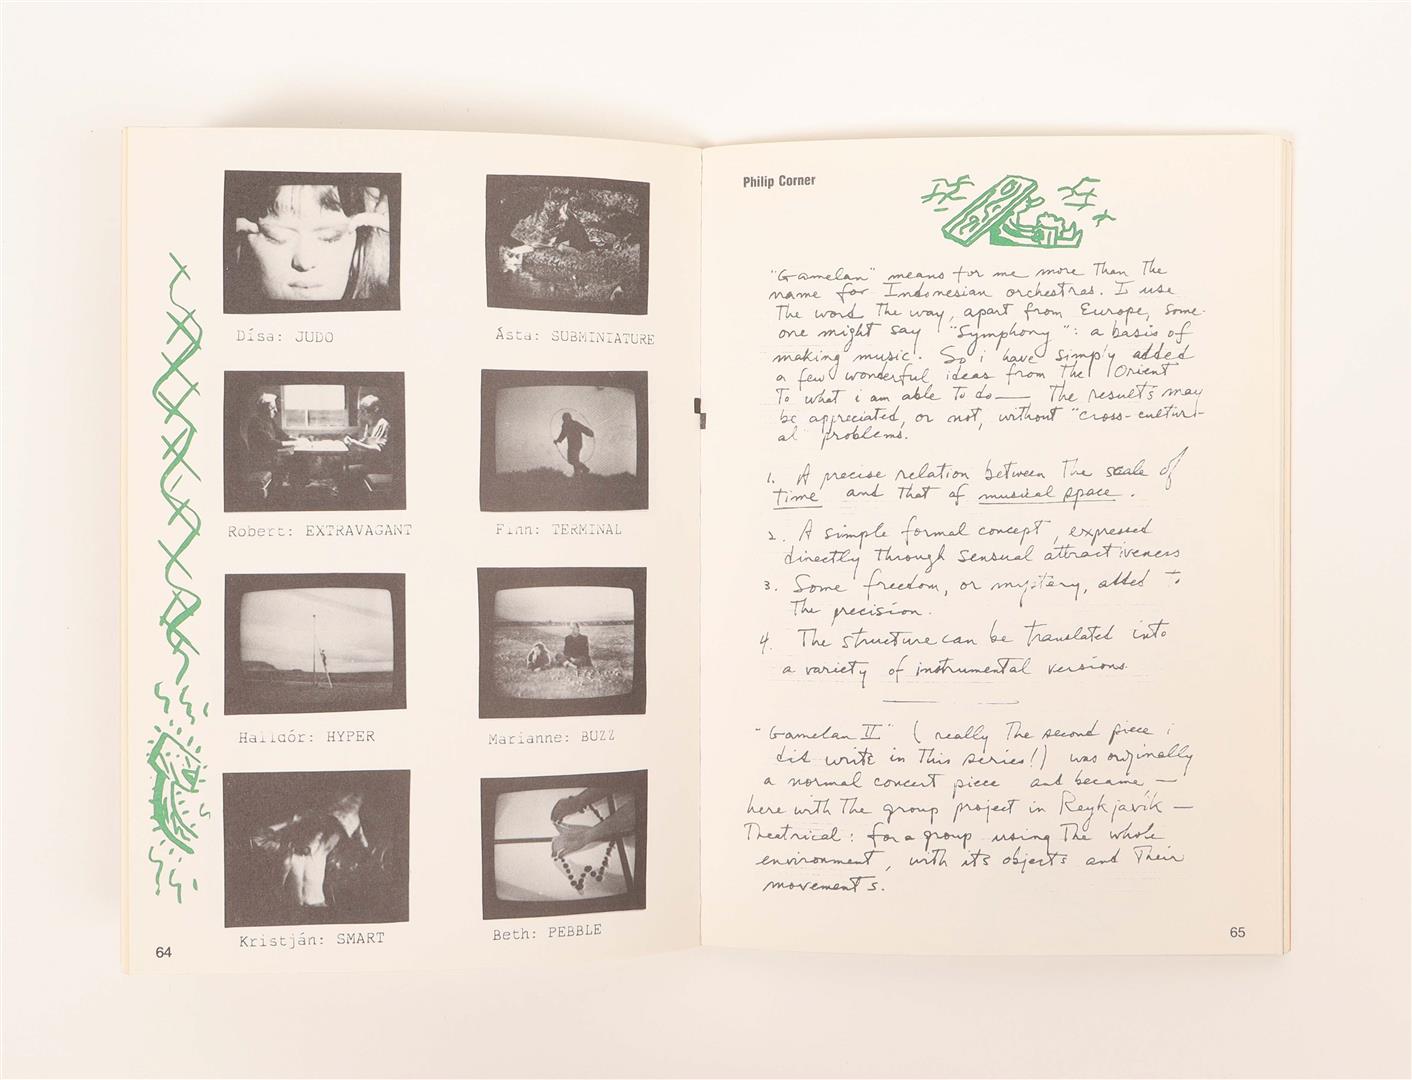 Dísa: JUDO
Ásta: SUBMINIATURE
Robert: EXTRAVAGANT
Finn: TERMINAL
Halldór: HYPER
Marianne: BUZZ
Kristján: SMART
Beth: PEBBLE
64
Philip Corner
"Gamelan" means for me more than the
name for Indonesian orchestras. I use
the word the way, apart from Europe, some-
one might say "Symphony": a basis of
making music. So i have simply added
a few wonderful ideas from the Orient
to what i am able to do — The results may
be appreciated, or not, without "cross-cultur-
al" problems.
1. A precise relation between the scale of
time and that of musical space.
2. A simple formal concept, expressed
directly through sensual attractiveness
3. Some freedom, or mystery, added to
the precision.
4. The structure can be translated into
a variety of instrumental versions.
"Gamelan II" (really the second piece i
did write in this series!) was originally
a normal concert piece and became —
here with the group project in Reykjavík —
Theatrical: for a group using the whole
environment, with its objects and their
movements.
65